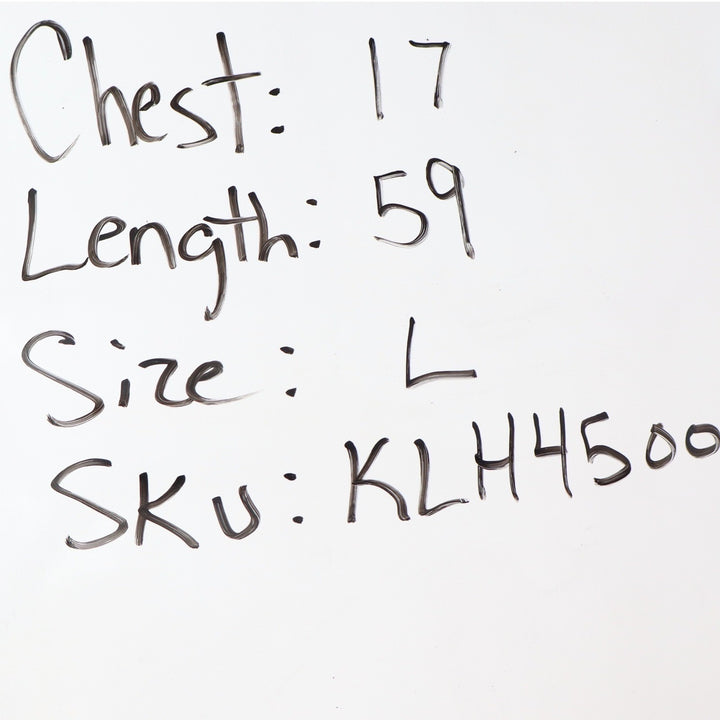 Chest: 17
Length: 59
Size: L
SKU: KLH4500